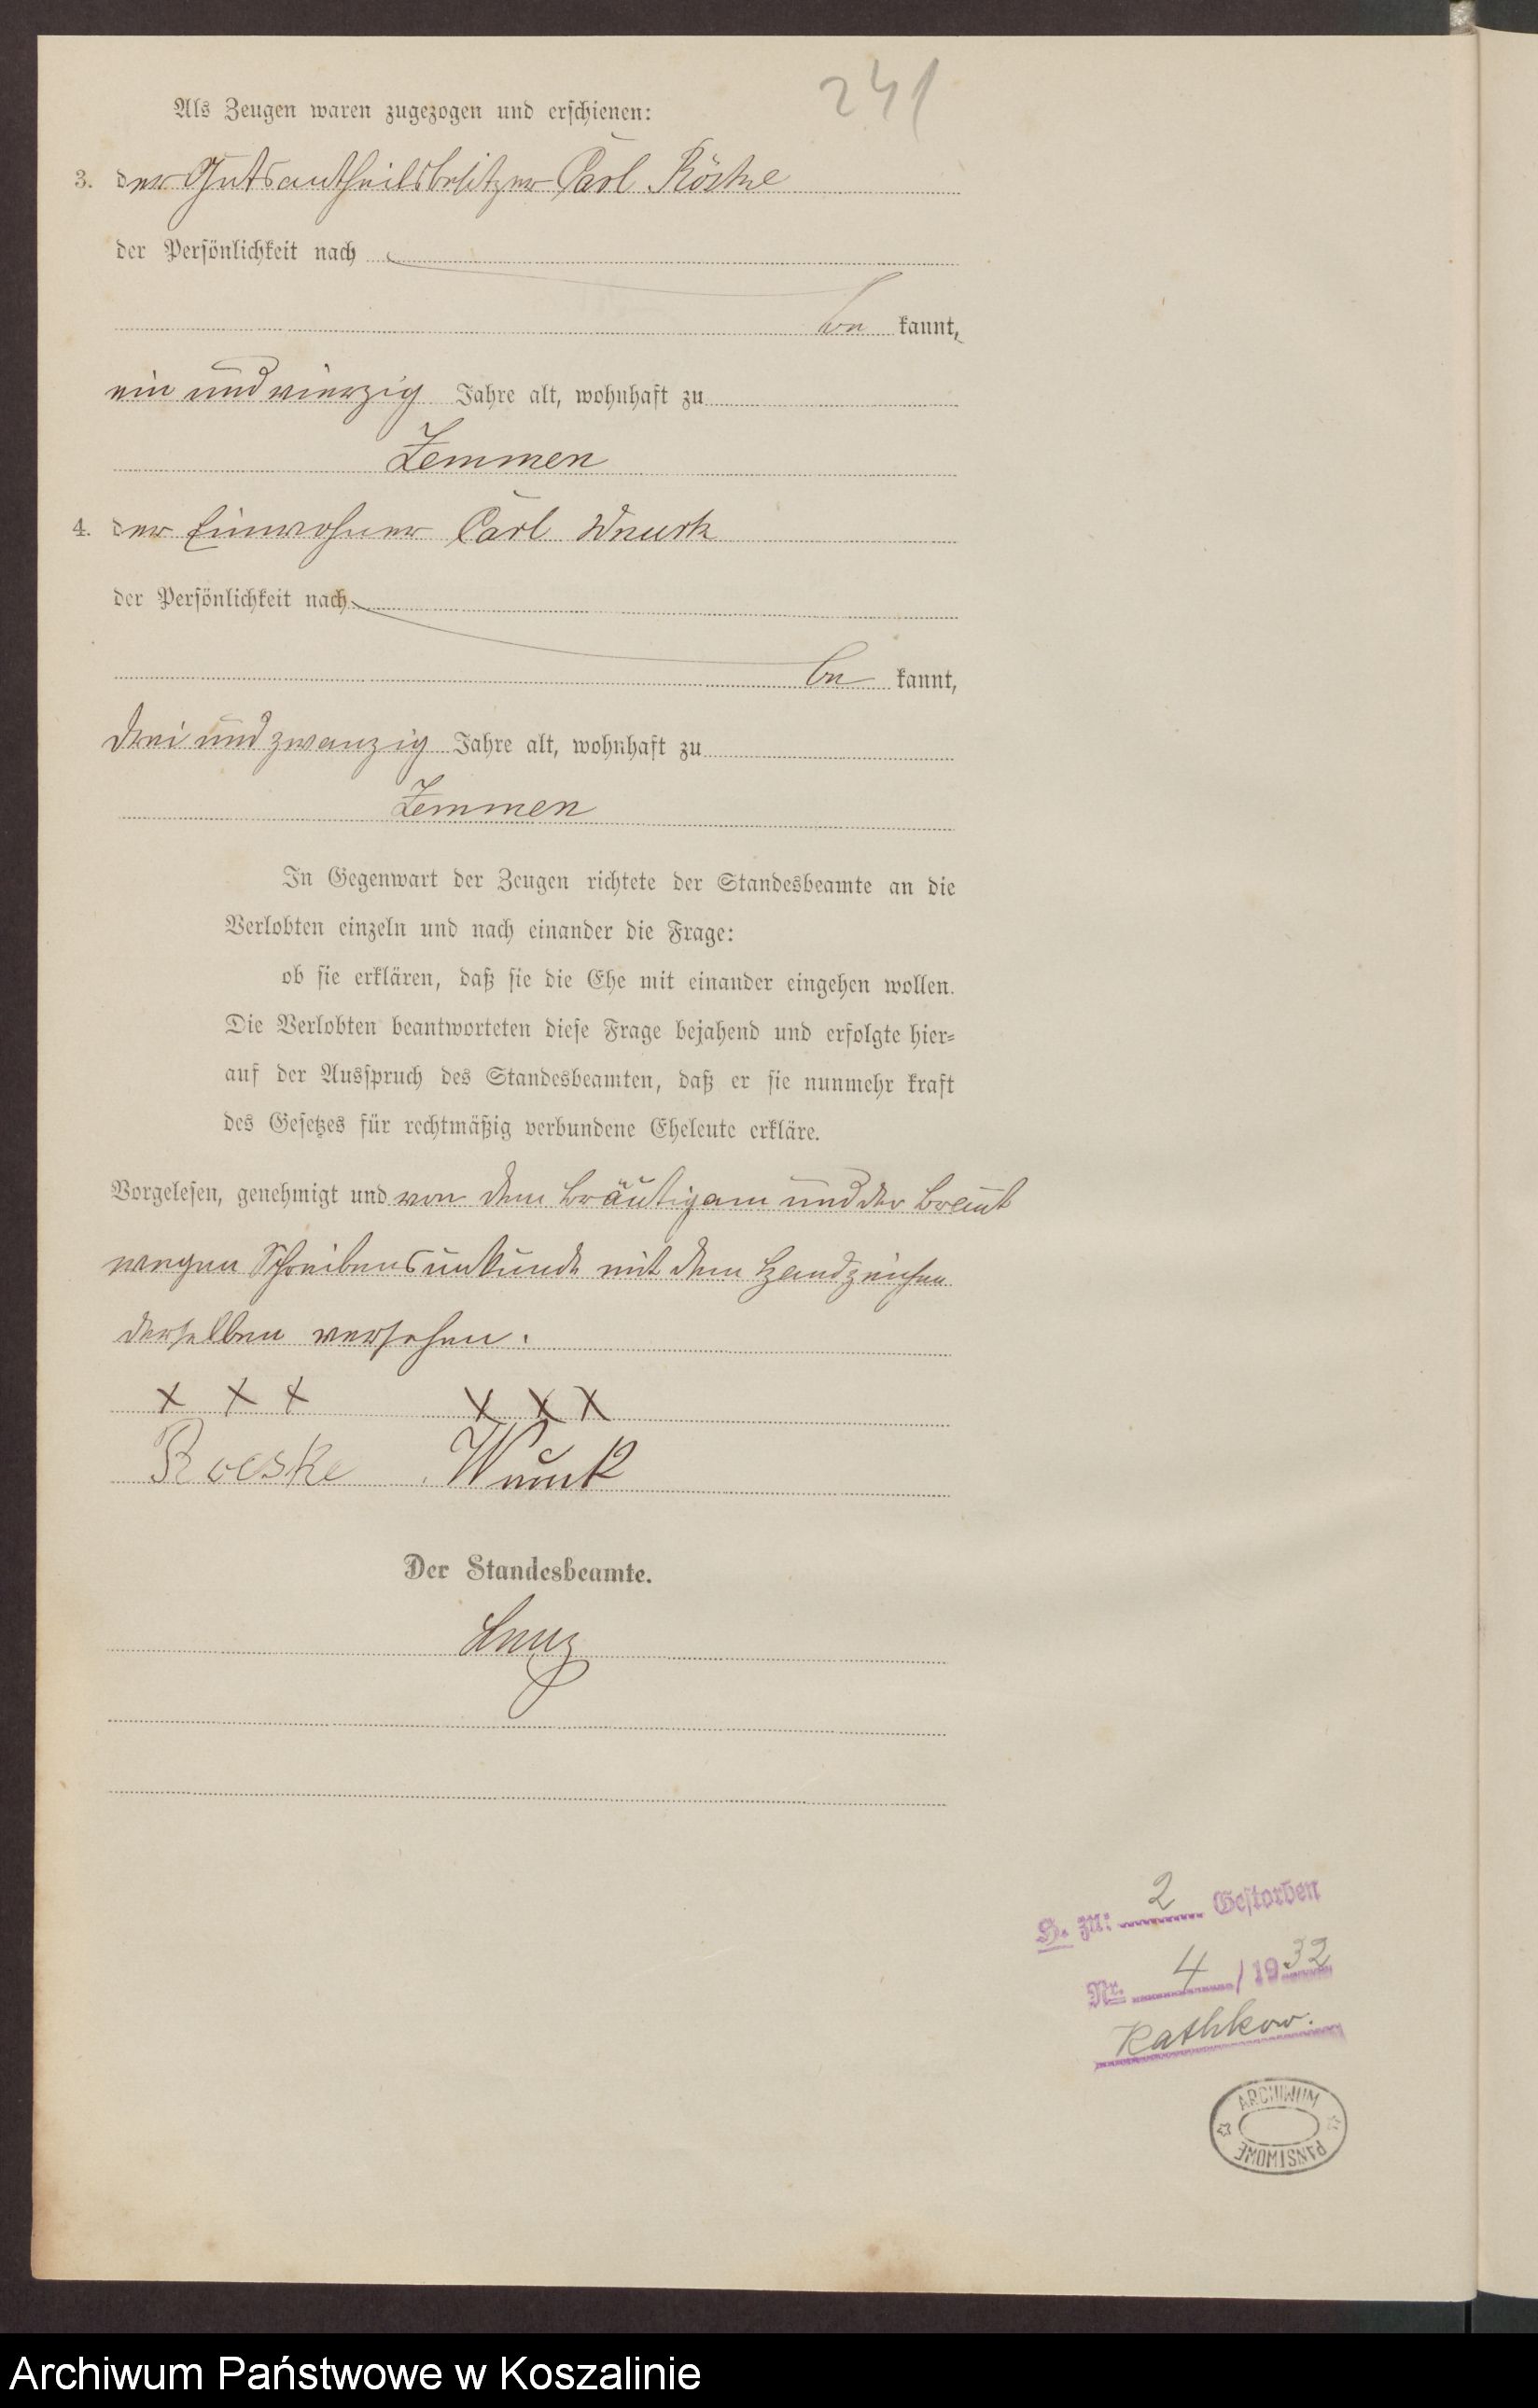 241
Als Zeugen waren zugezogen und erschienen:
3. der Gutsantheilsbesitzer Carl Röske
der Persönlichkeit nach
be kannt,
ein und vierzig Jahre alt, wohnhaft zu
Zemmen
4. der Einwohner Carl Wnuck
der Persönlichkeit nach
be kannt,
drei und zwanzig Jahre alt, wohnhaft zu
Zemmen
In Gegenwart der Zeugen richtete der Standesbeamte an die
Verlobten einzeln und nach einander die Frage:
ob sie erklären, daß sie die Ehe mit einander eingehen wollen.
Die Verlobten beantworteten diese Frage bejahend und erfolgte hier=
auf der Ausspruch des Standesbeamten, daß er sie nunmehr kraft
des Gesetzes für rechtmäßig verbundene Eheleute erkläre.
Vorgelesen, genehmigt und von dem Bräutigam und der Braut
wegen Schreibensunkunde mit dem Handzeichen
derselben versehen.
x x x x x x
Roeske Wnuck
Der Standesbeamte.
H. zu: 2 Gestorben
Nr. 4 / 1932
Rathkow.
ARCHIWUM
PAŃSTWOWE
Archiwum Państwowe w Koszalinie